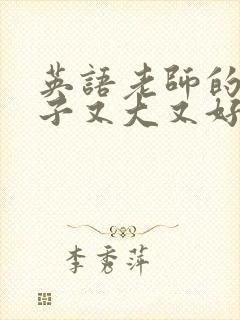 英語老師的
子又大又好
李秀萍